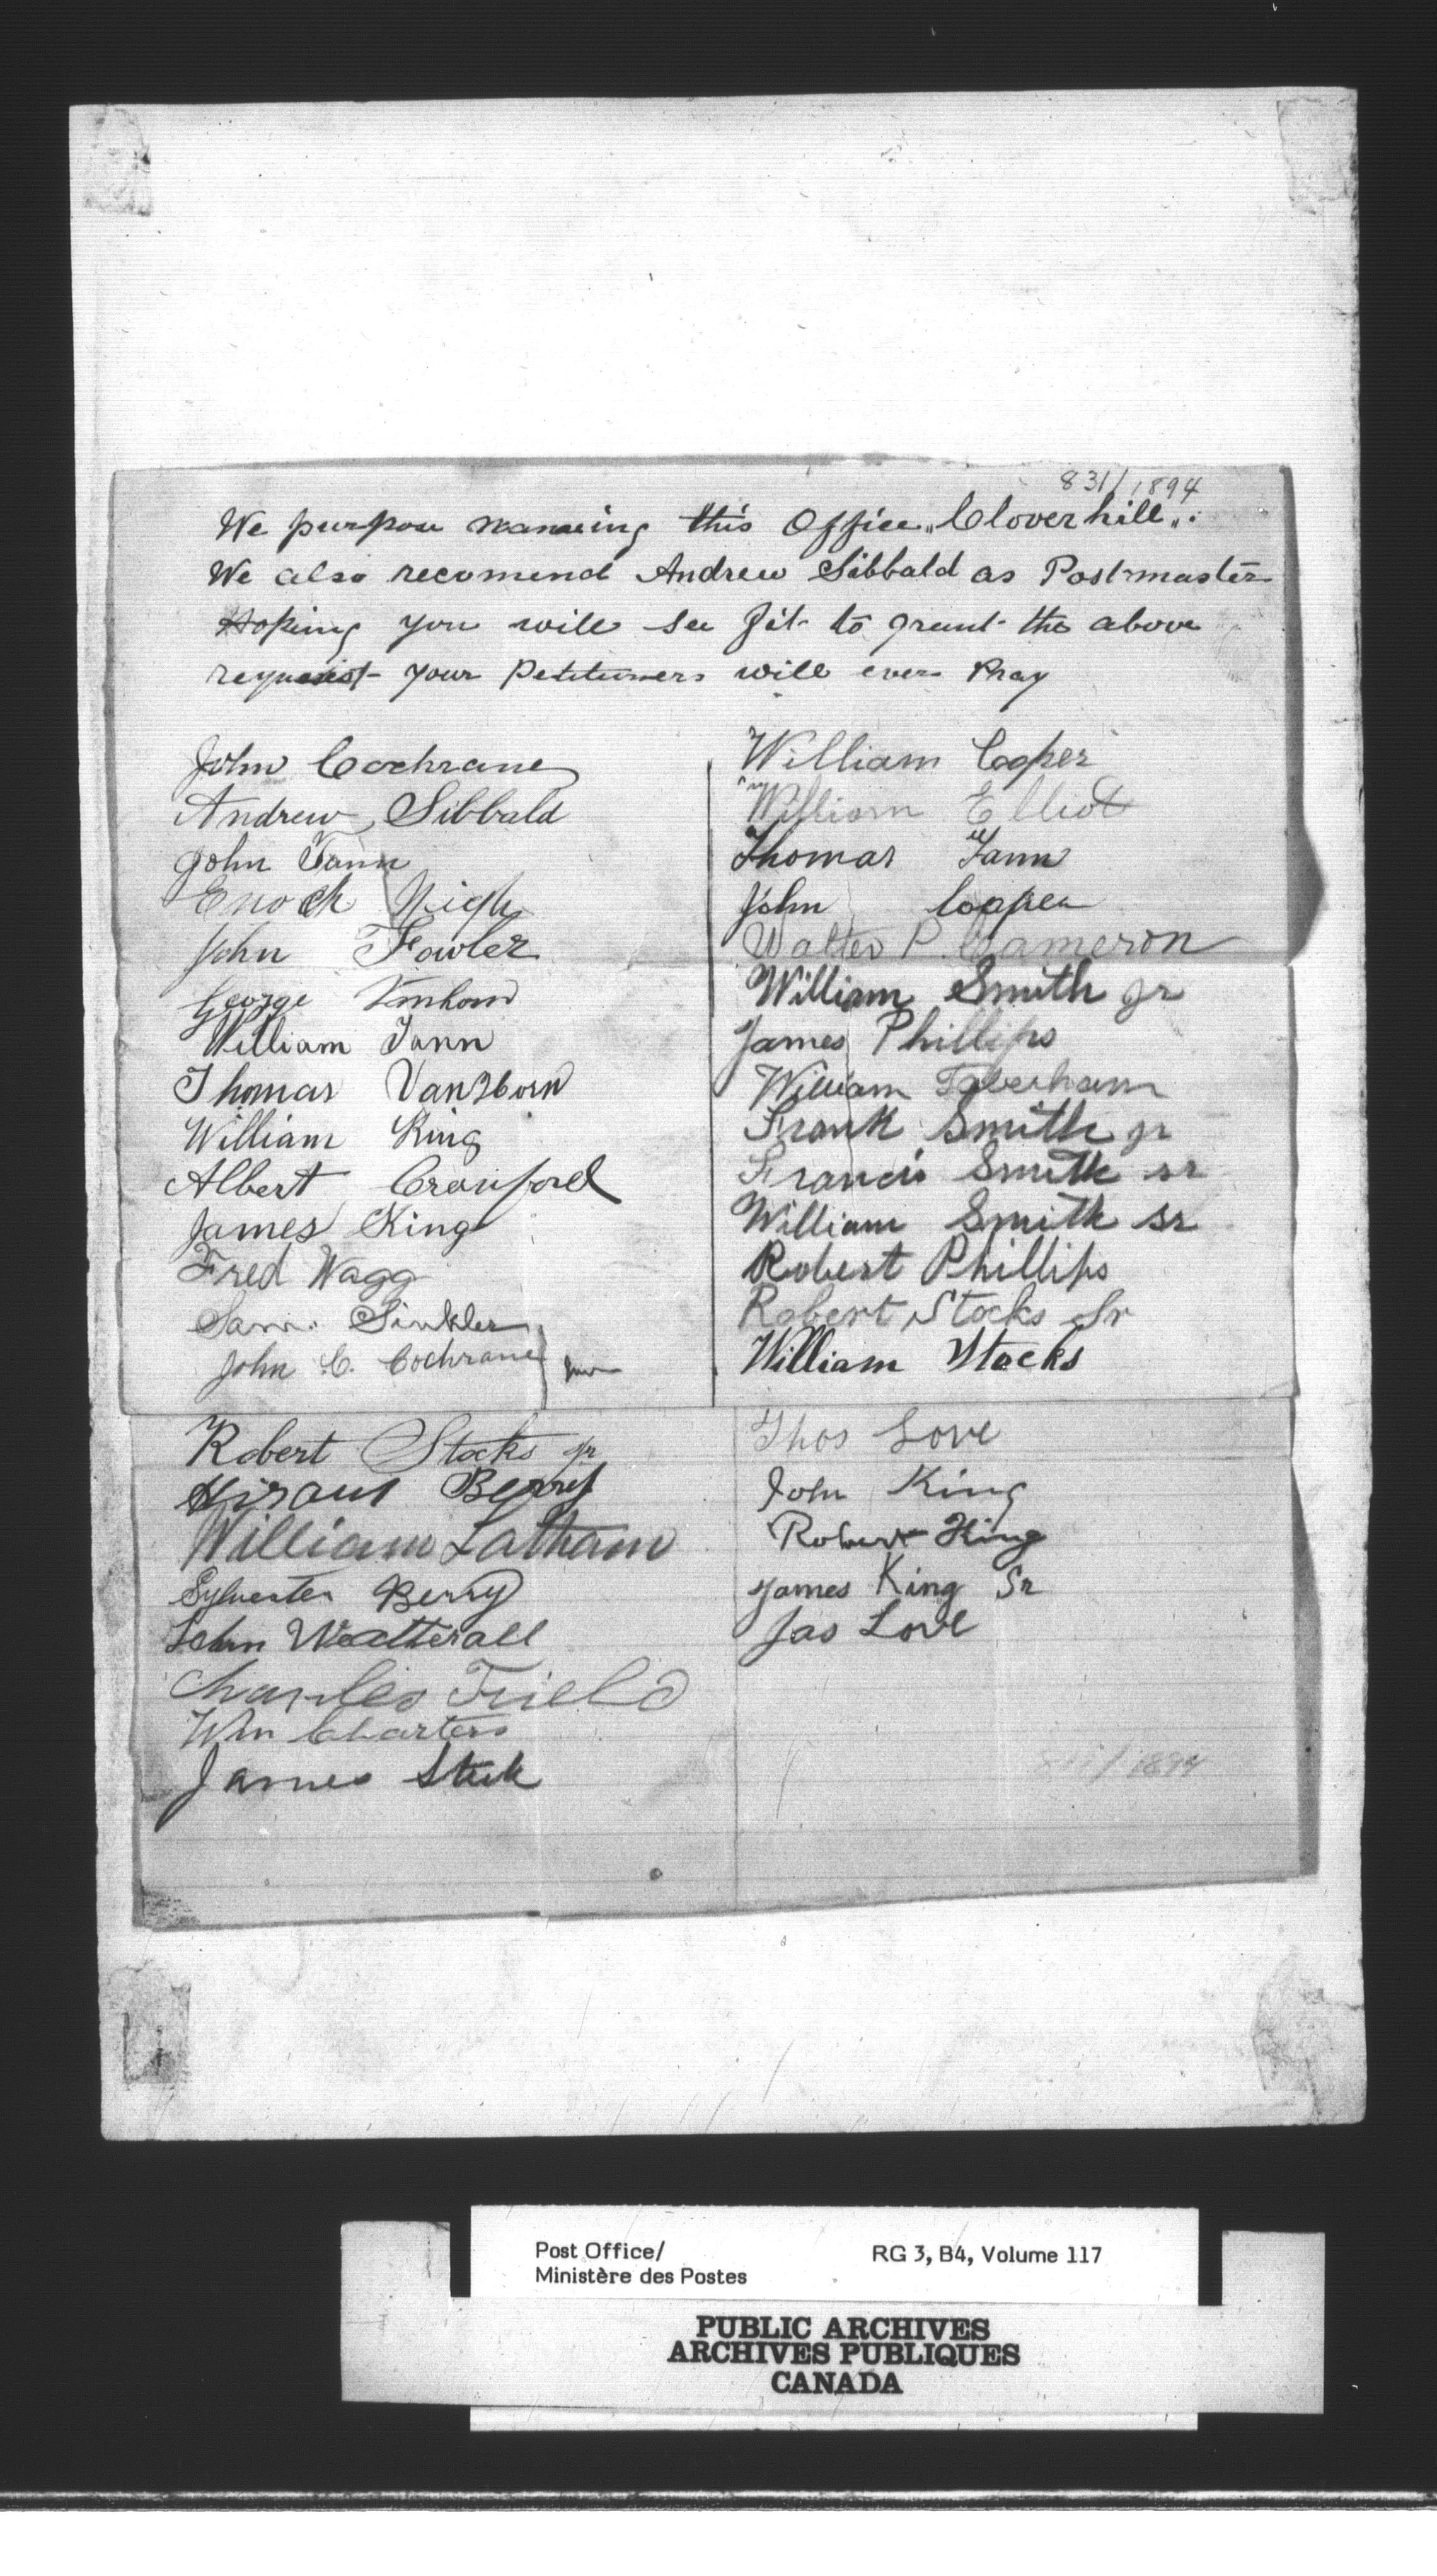 831/1894
We purpose nameing this Office „Cloverhill„.
We also recomend Andrew Sibbald as Postmaster
Hoping you will see fit to grant the above
request your Petitioners will ever Pray
John Cochrane
Andrew Sibbald
John Tann
Enoch Nigh
John Fowler
George
William Tann
Thomas VanHorn
William King
Albert Cranford
James King
Fred Wagg
Sam. Sinkler
John C. Cochrane
William Cooper
William Elliot
Thomas Tann
John Cooper
Walter P. Cameron
William Smith Jr
James Phillips
William
Frank Smith jr
Francis Smith sr
William Smith sr
Robert Phillips
Robert Stocks Sr
William Stocks
Robert Stocks jr
Hiram Berry
William Latham
Sylvester Berry
John Weatherall
Charles Field
Wm Charters
James
Thos Love
John King
Robert King
James King Sr
Jas Love
831/1894
Post Office/
Ministère des Postes
RG 3, B4, Volume 117
PUBLIC ARCHIVES
ARCHIVES PUBLIQUES
CANADA